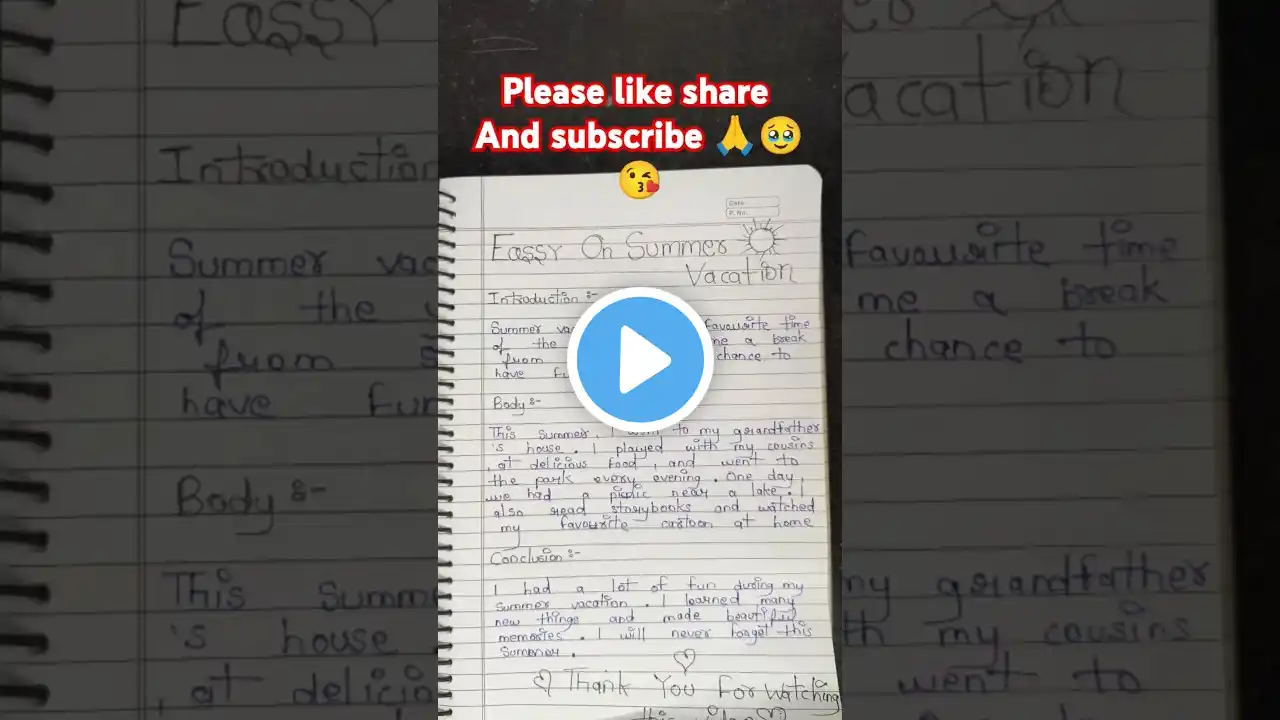 Please like share
And subscribe 🙏🥹
😘
Date
P. No.
Eassy On Summer
Vacation
Introduction :-
Summer favourite time
of the me a break
from chance to
have
Body :-
This Summer, I went to my grandfather
's house. I played with my cousins
, at delicious food, and went to
the park every evening. One day,
we had a picnic near a lake. I
also read storybooks and watched
my favourite cartoon at home
Conclusion :-
I had a lot of fun during my
summer vacation. I learned many
new things and made beautiful
memories. I will never forget this
Summer.
Thank You For Watching